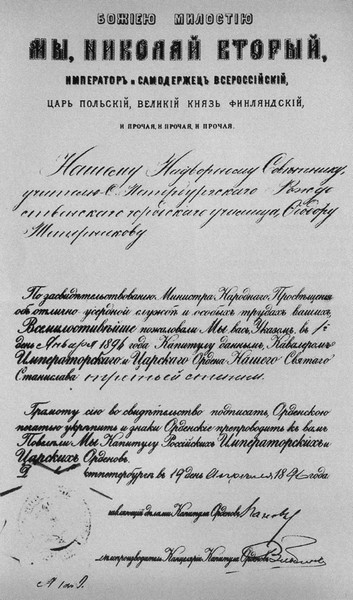 БОЖІЕЮ МИЛОСТІЮ
МЫ, НИКОЛАЙ ВТОРЫЙ,
ИМПЕРАТОРЪ и САМОДЕРЖЕЦЪ ВСЕРОССІЙСКІЙ,
ЦАРЬ ПОЛЬСКІЙ, ВЕЛИКІЙ КНЯЗЬ ФИНЛЯНДСКІЙ,
И ПРОЧАЯ, И ПРОЧАЯ, И ПРОЧАЯ.
Нашему Надворному Совѣтнику,
учителю С. Петербургскаго Рожде
ственскаго городскаго училища, Ѳедору
Тетерникову
По засвидѣтельствованію Министра Народнаго Просвѣщенія
объ отлично-усердной службѣ и особыхъ трудахъ вашихъ,
Всемилостивѣйше пожаловали Мы васъ, Указомъ, въ 1й
день Января 1896 года Капитулу даннымъ, Кавалеромъ
Императорскаго и Царскаго Ордена Нашего Святаго
Станислава третьей степени.
Грамоту сію во свидѣтельство подписать, Орденскою
печатью укрѣпить и знаки Орденскіе препроводить къ вамъ
Повелѣли Мы Капитулу Россійскихъ Императорскихъ и
Царскихъ Орденовъ.
въ 19 день Апрѣля 1896 года
дѣлами Капитула Орденовъ
Канцеляріи Капитула Орденовъ